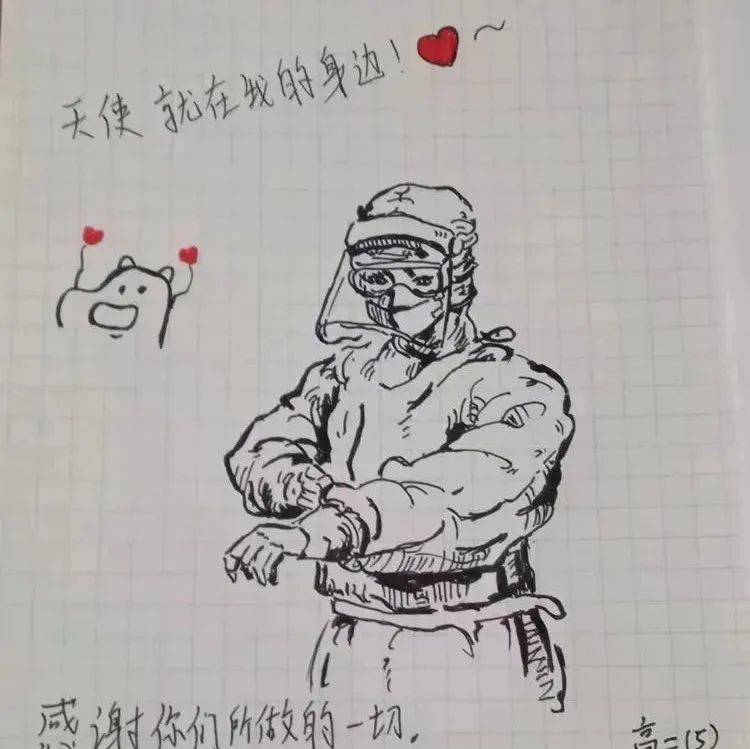 天使就在我的身边!
感谢你们所做的一切.
高二(5)